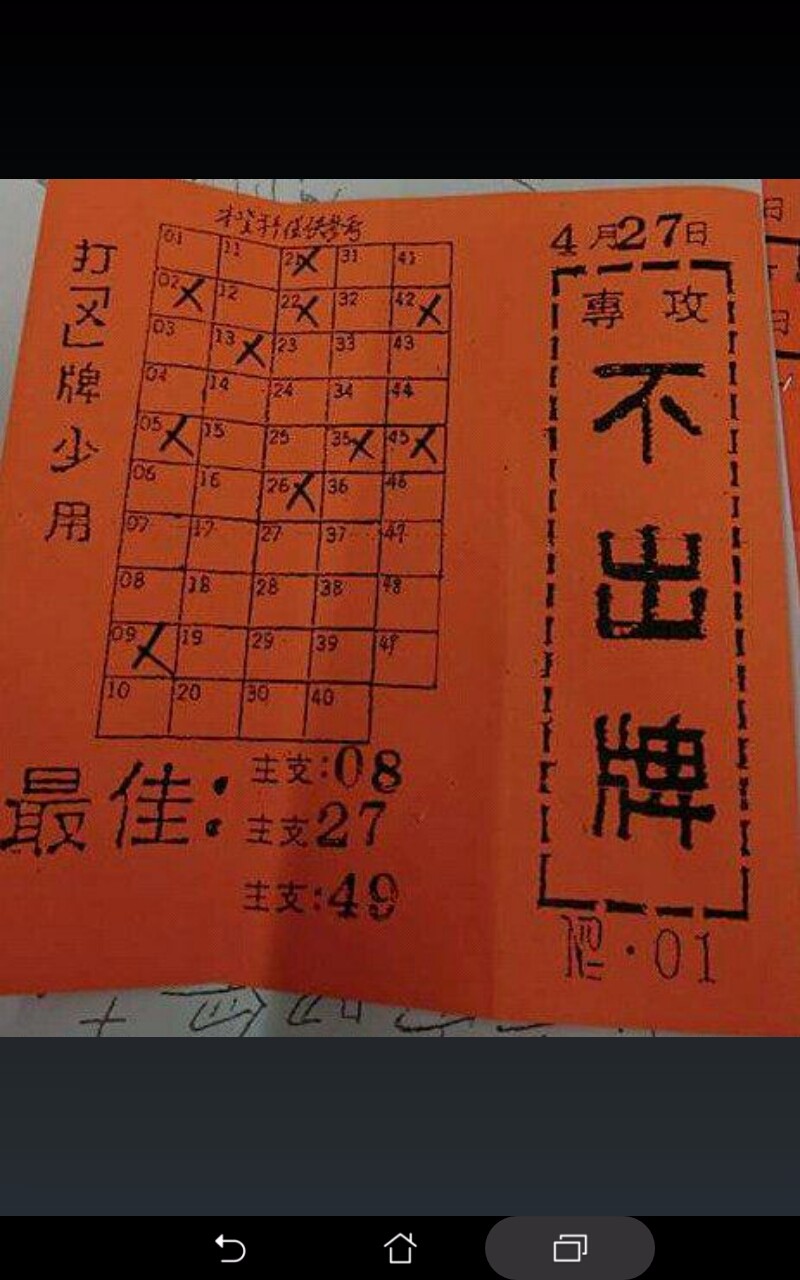 本資料僅供參考
打「X」牌少用
01 11 21 31 41
02 12 22 32 42
03 13 23 33 43
04 14 24 34 44
05 15 25 35 45
06 16 26 36 46
07 17 27 37 47
08 18 28 38 48
09 19 29 39 49
10 20 30 40
最佳：
主支：08
主支27
主支：49
4月27日
專攻
不出牌
№·01
日
日